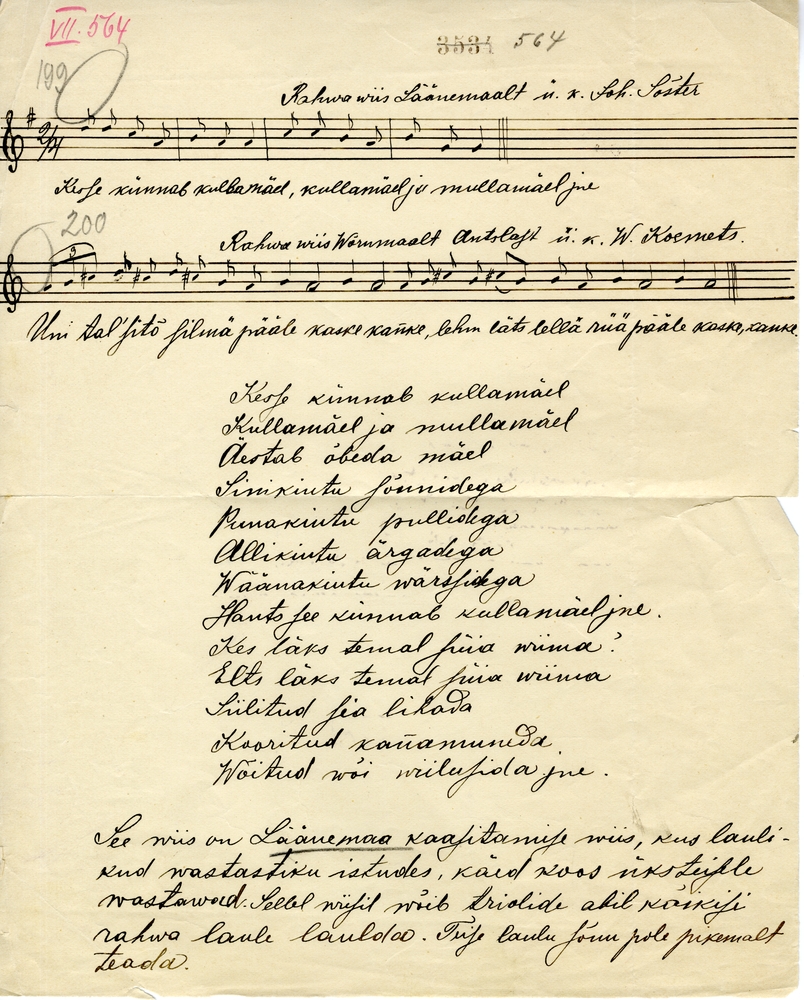 VII. 564
3534 564
199
Rahwa wiis Läänemaalt ü. k. Joh. Söster
2/4
Kesse künnab kullamäel, kullamäel ja mullamäel jne
200
Rahwa wiis Worumaalt Antslast ü. k. W. Koemets.
3
Uni tal' sitö silmä pääle kaske kanke, lehm läts lellä rüä pääle kaske, kanke
Kesse künnab kullamäel
Kullamäel ja mullamäel
Äestab õbeda mäel
Sinikintu sõnnidega
Punakintu pullidega
Allikintu ärgadega
Wäänakintu wärssidega
Hants see künnab kullamäel jne.
Kes läks temal süia wiima?
Elts läks temal süia wiima
Siilitud sia lihada
Kooritud kañamuneda
Wõitud wõi wiilusida jne.
See wiis on Läänemaa kaasitamise wiis, kus lauli-
kud wastastiku istudes, käed koos üksteisele
wastawad. Sellel wiisil wõib triolide abil kõikisi
rahwa laule laulda. Teise laulu sõnu pole pikemalt
teada.